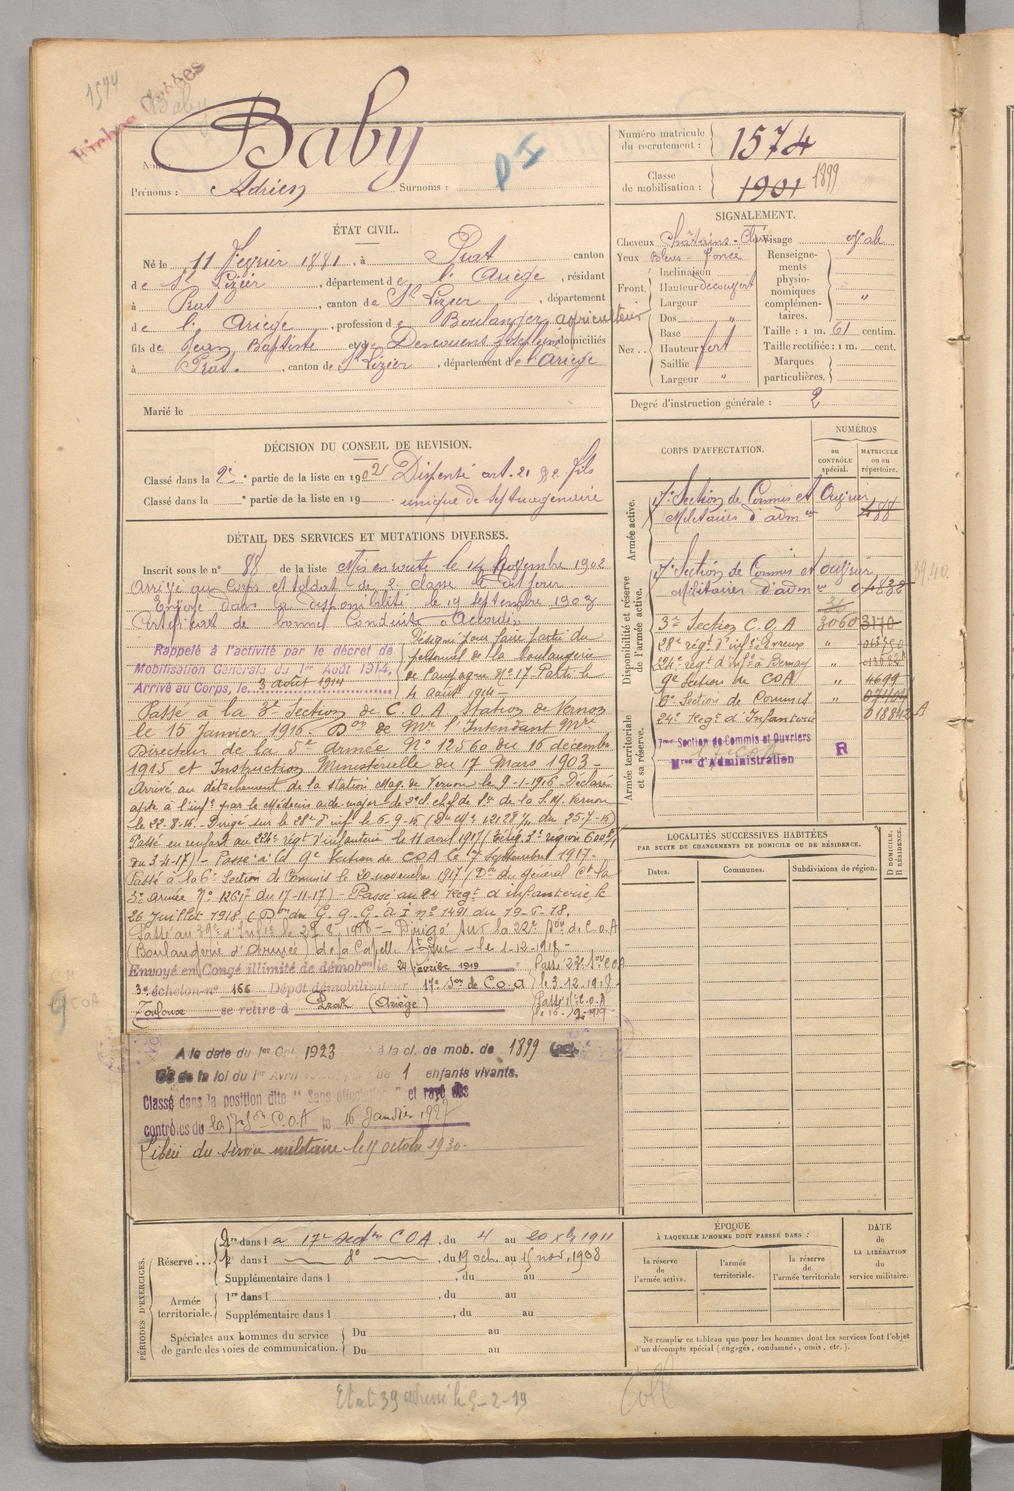 1574
Baby
Nom :
Prénoms : Adrien Surnoms :
PI
Numéro matricule du recrutement : 1574
Classe de mobilisation : 1901 1899
ÉTAT CIVIL.
Né le 11 février 1881, à Prat canton
de St Lizier, département de l'Ariège, résidant
à Prat, canton de St Lizier, département
de l'Ariège, profession de Boulanger agriculteur
fils de Jean Baptiste et de Descouens Joséphine domiciliés
à Prat, canton de St Lizier, département de l'Ariège
Marié le
SIGNALEMENT.
Cheveux Châtains-Clair Visage ovale
Yeux Bleus-foncé
Front. Inclinaison
Hauteur découvert
Largeur
Nez. Dos "
Base
Hauteur fort
Saillie
Largeur "
Renseignements physionomiques complémentaires. "
Taille : 1 m. 61 centim.
Taille rectifiée : 1 m. cent.
Marques particulières.
Degré d'instruction générale : 2
DÉCISION DU CONSEIL DE REVISION.
Classé dans la 2e partie de la liste en 1902 Dispensé art. 21 fils
Classé dans la e partie de la liste en 19 unique de septuagénaire
CORPS D'AFFECTATION.
NUMÉROS
au CONTRÔLE spécial.
MATRICULE ou au répertoire.
Armée active.
7e Section de Commis et Ouvriers
Militaires d'admon 488
Disponibilité et réserve de l'armée active.
7e Section de Commis et ouvriers
Militaires d'admon 04838
3e Section C.O.A 3060 3170
28e régt d'infie Evreux "
224e régt d'infie à Bernay "
9e Section de COA " 4699
6e Section de Commis "
24e Régt d'Infanterie 01884
Armée territoriale et sa réserve.
17me Section de Commis et Ouvriers
Mres d'Administration
R
DÉTAIL DES SERVICES ET MUTATIONS DIVERSES.
Inscrit sous le n° 88 de la liste Mis en route le 14 Novembre 1902
Arrivé au Corps et soldat de 2e classe le dit jour
Envoyé dans la disponibilité le 19 septembre 1903
Certificat de bonne Conduite "Accordé"
Rappelé à l'activité par le décret de
Mobilisation Générale du 1er Août 1914,
Arrivé au Corps, le 3 août 1914
Désigné pour faire partie du
personnel de la boulangerie
de Campagne N° 17 Parti le
4 août 1914
Passé à la 3e Section de C.O.A Station de Vernon
le 15 janvier 1916. Don de Mr l'Intendant Mre
Directeur de la 5e Armée N° 12560 du 16 décembre
1915 et Instruction Ministerielle du 17 Mars 1903-
Arrivé au détachement de la station Mag. de Vernon le 9-1-1916 Déclaré
apte à l'infie par le Médecin aide major de 2e cl. chef de Sce de la S.M. Vernon
le 22-8-16. Dirigé sur le 28e d'inf le 6-9-16
Passé en renfort au 224e régt d'infanterie le 11 avril 1917
du 3-4-17) - Passé à la 9e Section de COA le 7 septembre 1917-
Passé à la 6e Section de Commis le 20 novembre 1917 (Don du général Ct la
3e armée N° 1261 du 17-11-17) - Passé au 24 Régt d'infanterie le
26 Juillet 1918 (Don du G. Q. G. n° 1491 du 19-6-18.
Dirigé sur la 22e Son de C.O.A
(Boulangerie d'Armée) de la Capelle - le 1-12-1918-
Envoyé en Congé illimité de démobon le 24 février 1919
3e échelon-n° 166 Dépôt démobilisateur 17e Son de C.o.a
Toulouse se retire à Prat (Ariège)
Passé 22e Son COA
le 3-12-1918-
A la date du 1er Oct 1923 à la cl. de mob. de 1899
de la loi du 1er Avril de 1 enfants vivants.
Classé dans la position dite "Sans affectation" et rayé des
contrôles du la 17e Son C.O.A le 16 Janvier 1927
Libéré du service militaire le octobre 1930-
LOCALITÉS SUCCESSIVES HABITÉES
PAR SUITE DE CHANGEMENTS DE DOMICILE OU DE RÉSIDENCE.
Dates. Communes. Subdivisions de région. D DOMICILE. R RÉSIDENCE.
PÉRIODES D'EXERCICES.
Réserve... 2e dans l a 17e section COA, du 4 au 20 xbre 1911
1re dans l do, du 19 oct. au 15 nov. 1908
Supplémentaire dans l , du au
Armée territoriale. 1re dans l , du au
Supplémentaire dans l , du au
Spéciales aux hommes du service de garde des voies de communication. Du au
Du au
ÉPOQUE
À LAQUELLE L'HOMME DOIT PASSER DANS :
la réserve de l'armée active.
l'armée territoriale.
la réserve de l'armée territoriale
DATE de LA LIBÉRATION du service militaire.
Ne remplir ce tableau que pour les hommes dont les services font l'objet
d'un décompte spécial (engagés, condamnés, omis, etc.).
Etat 39 adressé le 5-2-19